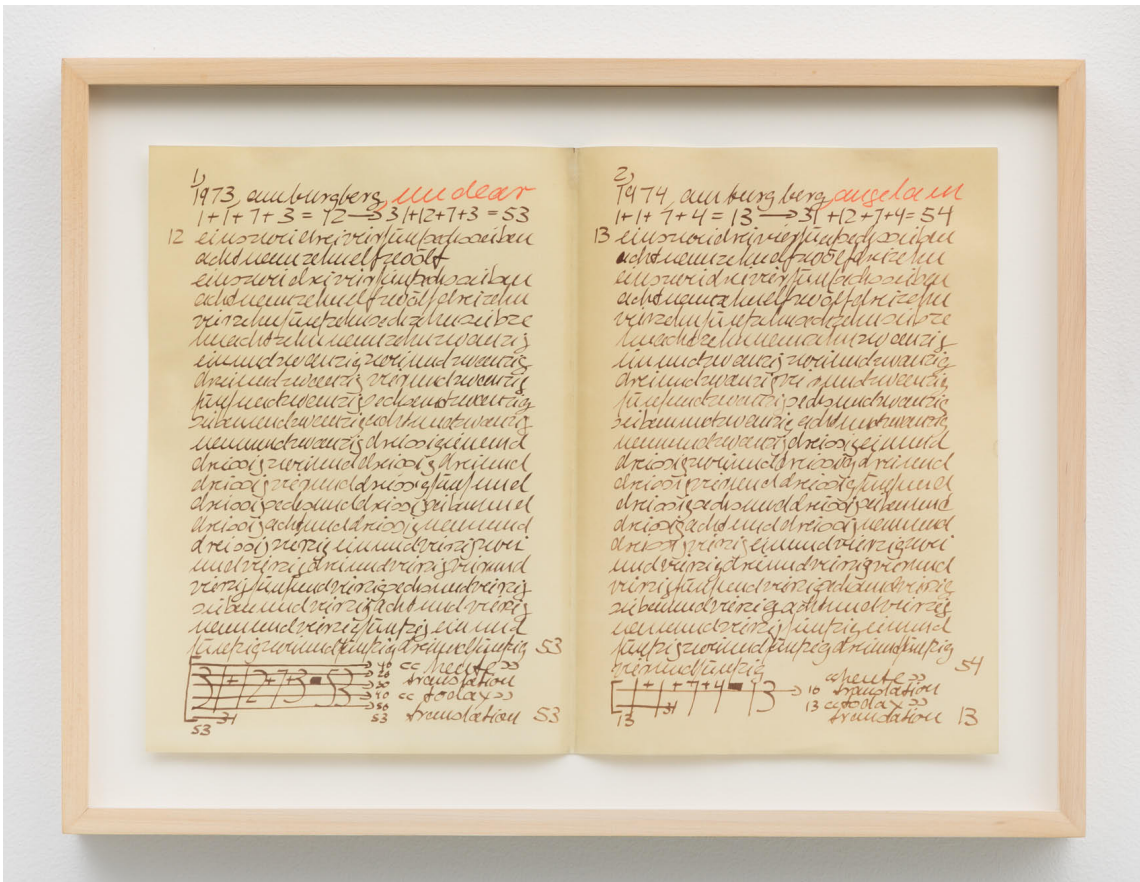 1)
1973, am burgberg,
1+1+7+3 = 12 → 31+12+7+3 = 53
12 einszweidreivierfünfsechssieben
achtneunzehnelfzwölf
einszweidreivierfünfsechssieben
achtneunzehnelfzwölfdreizehn
vierzehnfünfzehnsechzehnsiebze
hnachtzehnneunzehnzwanzig
einundzwanzigzweiundzwanzig
dreiundzwanzigvierundzwanzig
fünfundzwanzigsechsundzwanzig
siebenundzwanzigachtundzwanzig
neunundzwanzigdreissigeinund
dreissigzweiunddreissigdreiund
dreissigvierunddreissigfünfund
dreissigsechsunddreissigsiebenund
dreissigachtunddreissigneunund
dreissigvierzigeinundvierzigzwei
undvierzigdreiundvierzigvierund
vierzigfünfundvierzigsechsundvierzig
siebenundvierzigachtundvierzig
neunundvierzigfünfzigeinund
fünfzigzweiundfünfzigdreiundfünfzig 53
31+12+7+3=53 → 10 << heute >>
→ 20 translation
→ 30
→ 40 << today >>
→ 50
53 31 53 translation 53
2)
1974, am burgberg,
1+1+7+4 = 13 → 31+12+7+4 = 54
13 einszweidreivierfünfsechssieben
achtneunzehnelfzwölfdreizehn
einszweidreivierfünfsechssieben
achtneunzehnelfzwölfdreizehn
vierzehnfünfzehnsechzehnsiebze
hnachtzehnneunzehnzwanzig
einundzwanzigzweiundzwanzig
dreiundzwanzigvierundzwanzig
fünfundzwanzigsechsundzwanzig
siebenundzwanzigachtundzwanzig
neunundzwanzigdreissigeinund
dreissigzweiunddreissigdreiund
dreissigvierunddreissigfünfund
dreissigsechsunddreissigsiebenund
dreissigachtunddreissigneunund
dreissigvierzigeinundvierzigzwei
undvierzigdreiundvierzigvierund
vierzigfünfundvierzigsechsundvierzig
siebenundvierzigachtundvierzig
neunundvierzigfünfzigeinund
fünfzigzweiundfünfzigdreiundfünfzig
vierundfünfzig 54
1+1+7+4=13 << heute >>
→ 10 translation
13 << today >>
13 31 translation 13